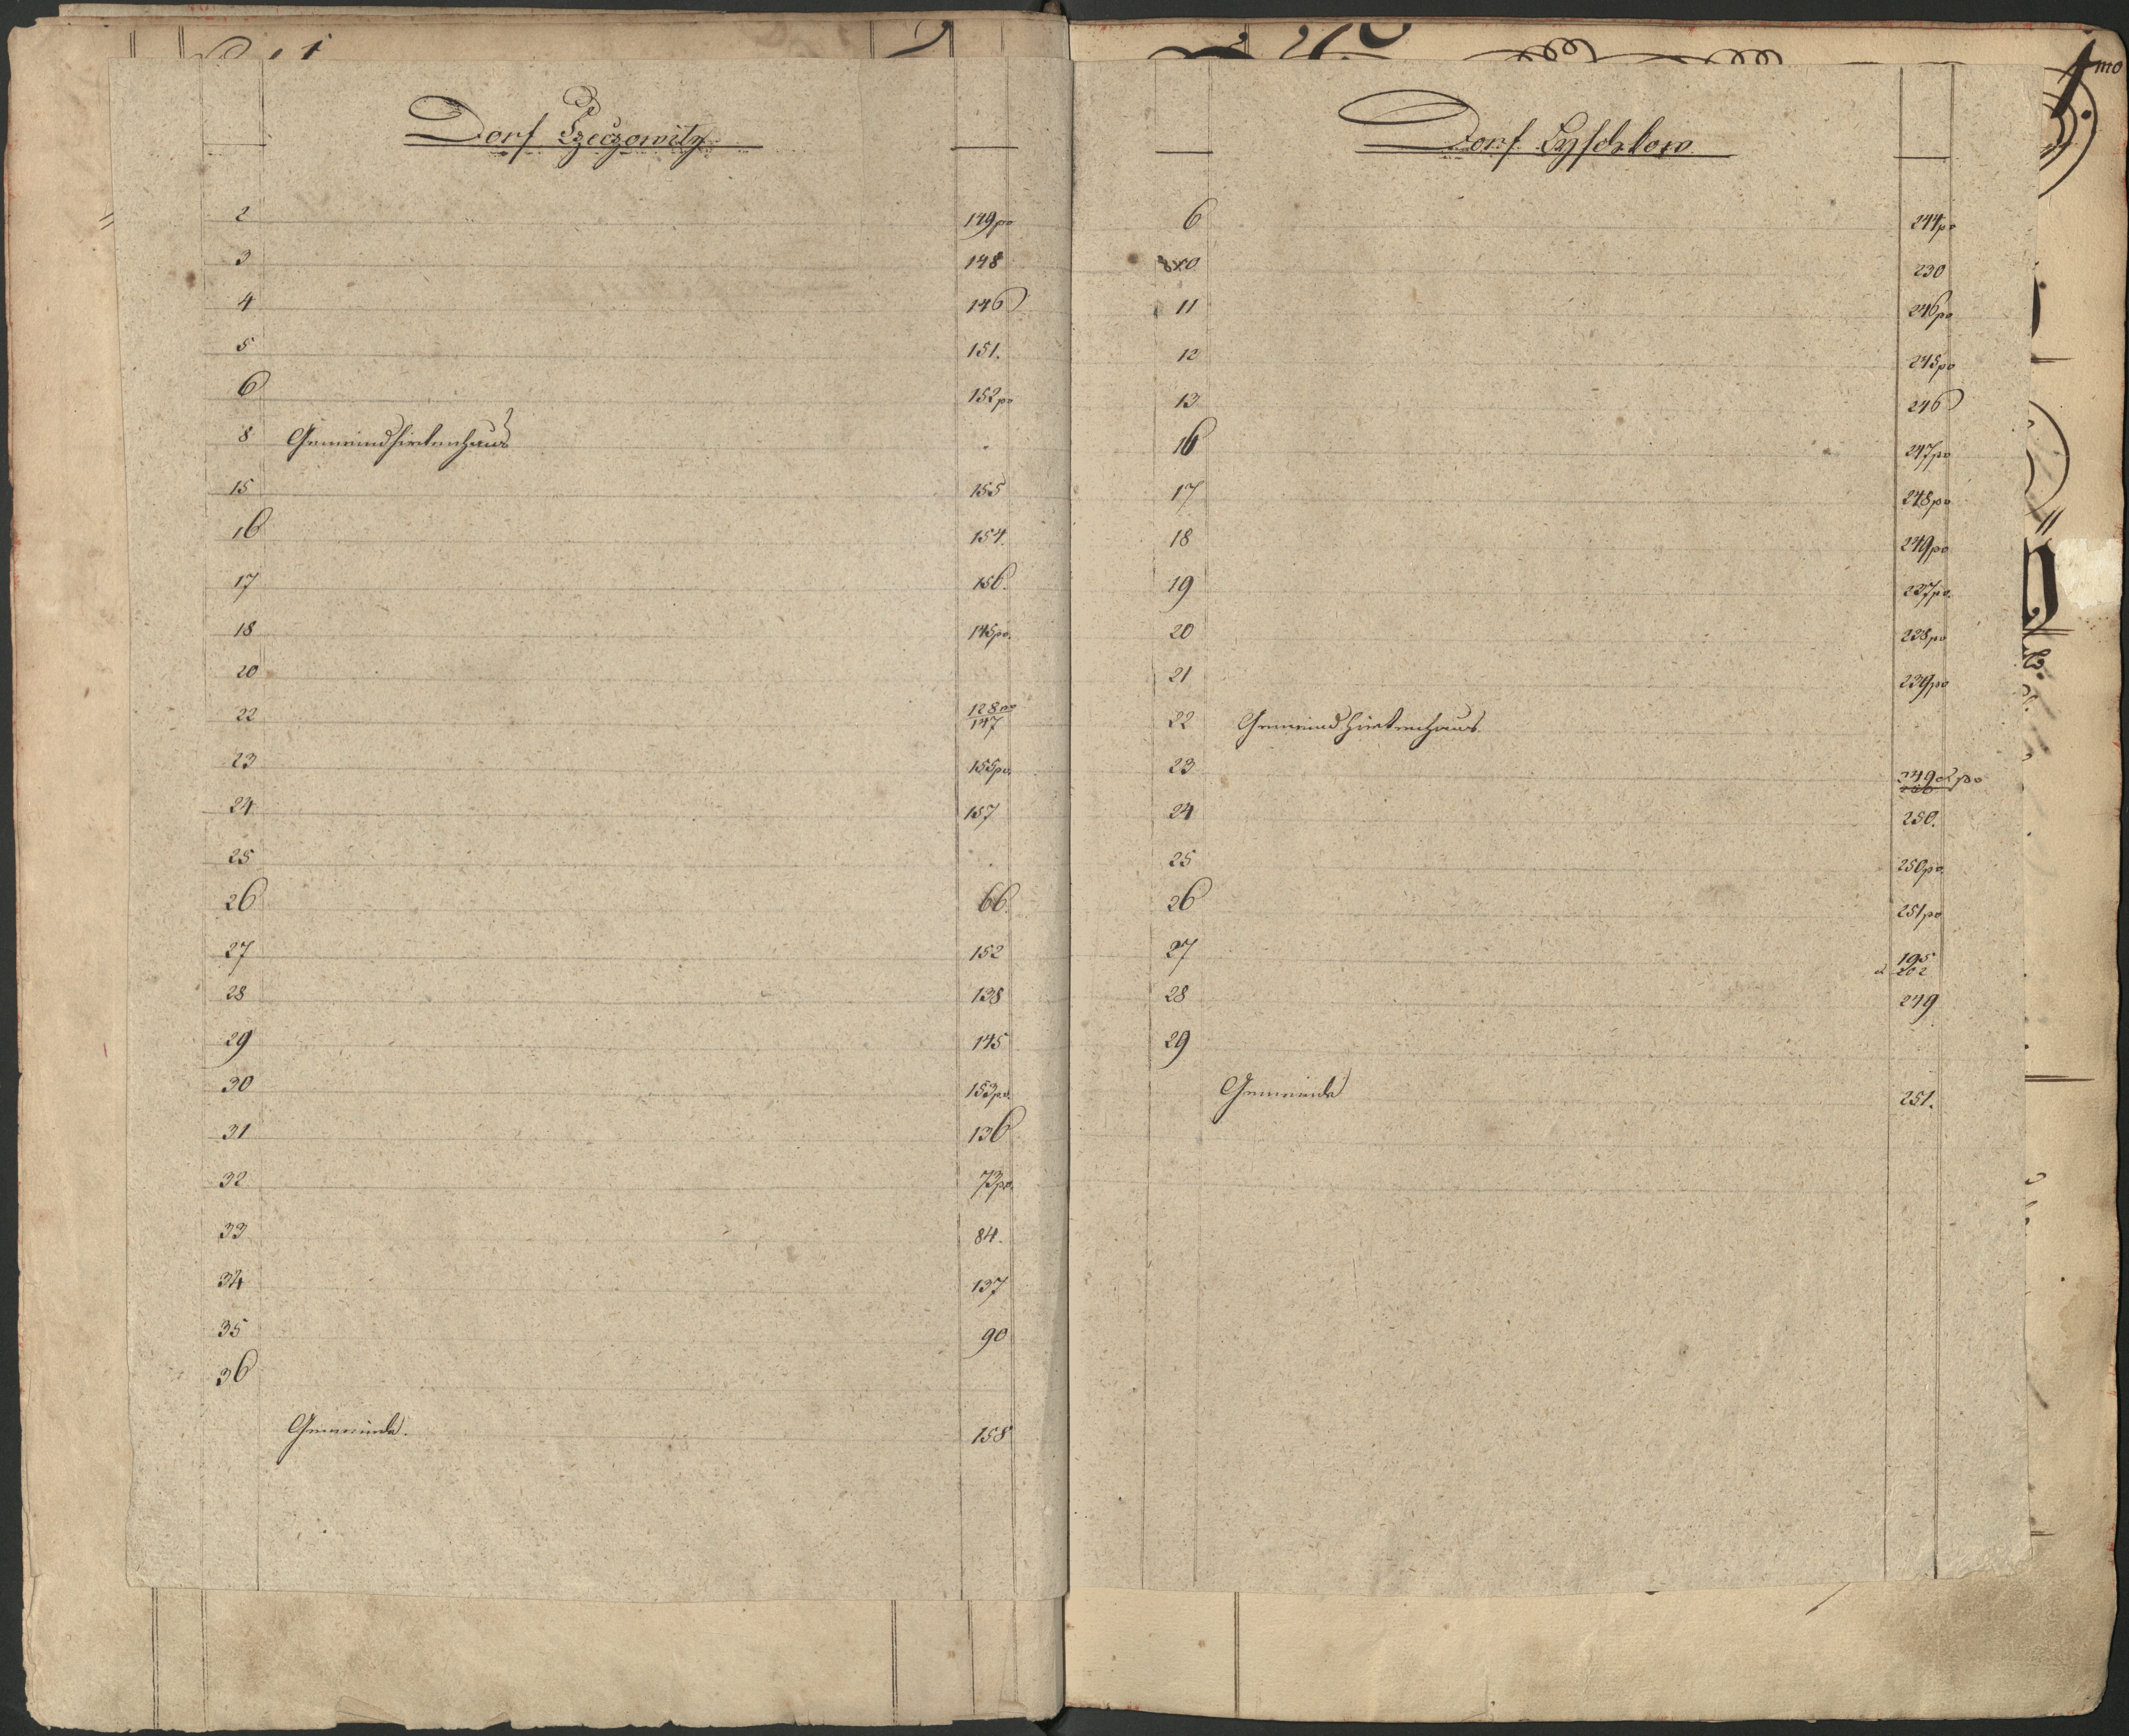 Dorf Rzeczowitz
2 149 po
3 148
4 146
5 151.
6 152 po
8 Gemeindhirtenhaus
15 155
16 154.
17 156.
18 145 po.
20
22 128 po
147
23 155 po.
24 157
25
26 66.
27 152
28 138
29 145
30 153 po.
31 136
32 73 po.
33 84.
34 137
35 90
36
Gemeinde. 158
1mo
Dorf Lyschkow
6 244 po
230
11 246 po
12 245 po
13 246
16 247 po
17 248 po
18 249 po
19 237 po.
20 238 po
21 239 po
22 Gemeind Hirtenhaus
23 249 a po
24 250.
25 250 po.
26 251 po
27 195
a 202
28 249
29
Gemeinde 251.